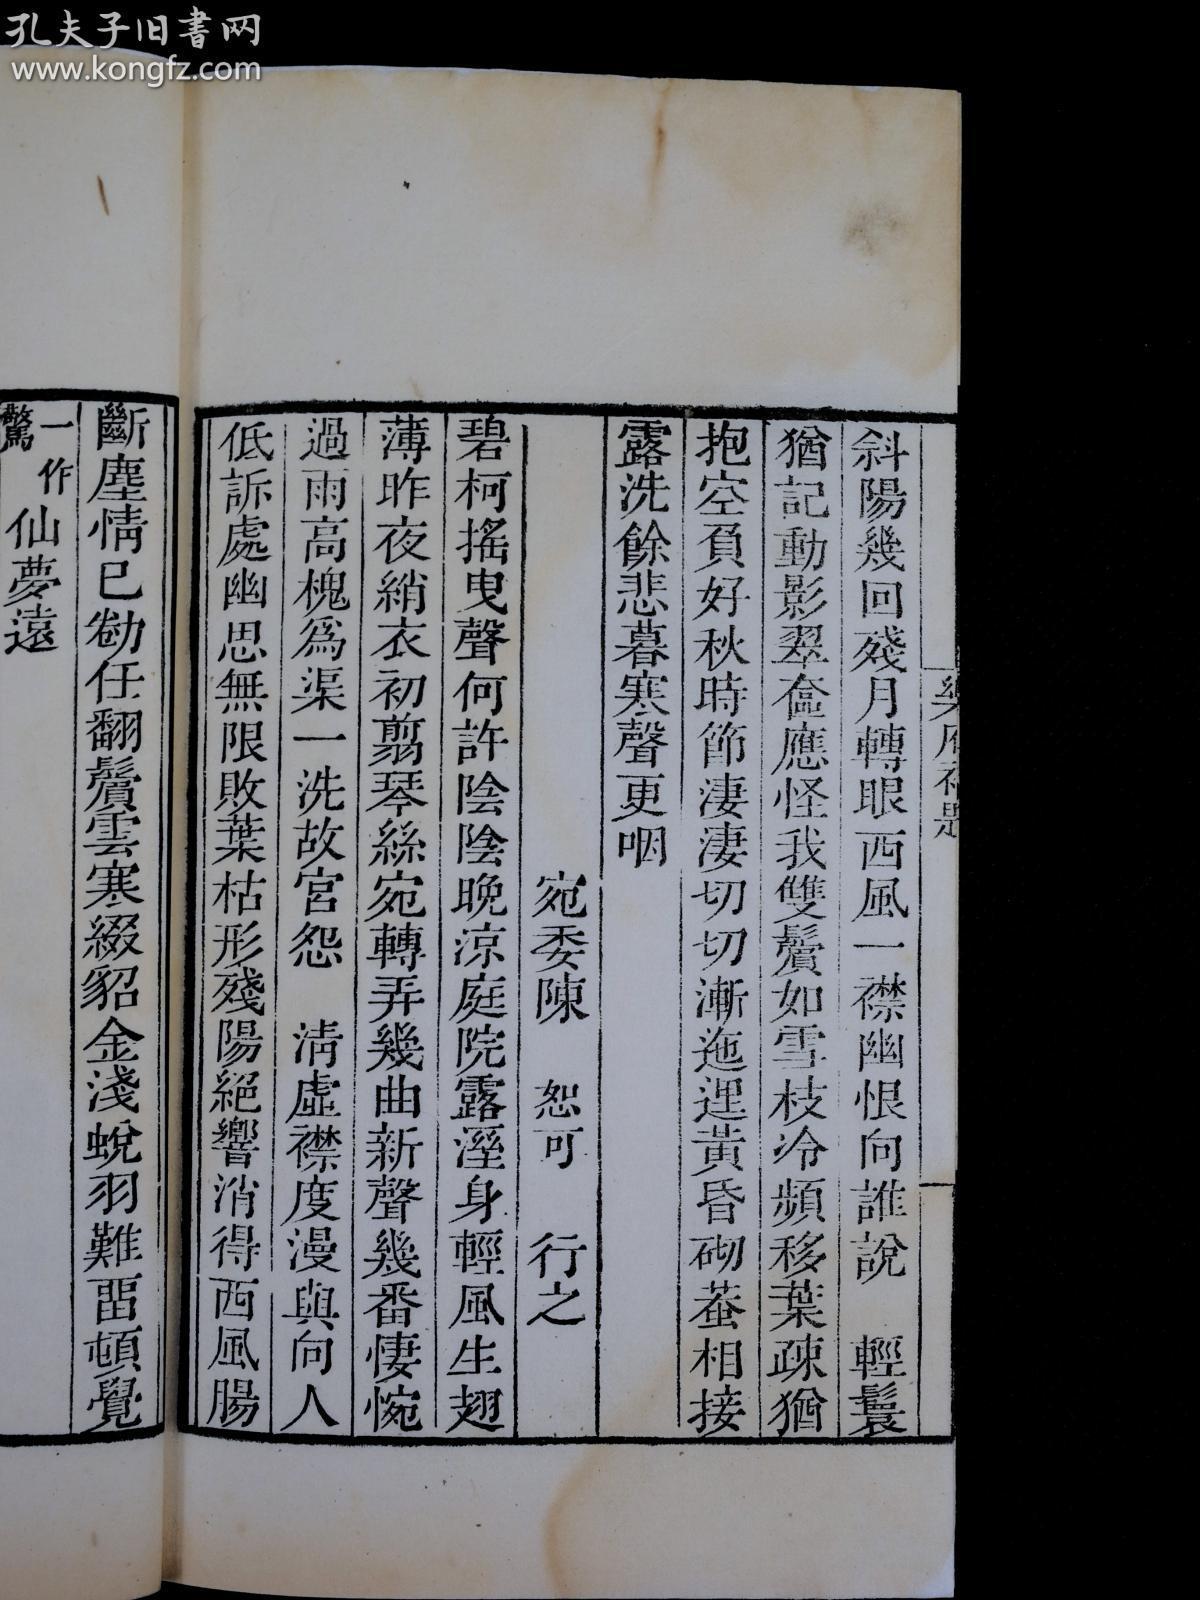 孔夫子旧书网
www.kongfz.com
樂府補題
斜陽幾回殘月轉眼西風一襟幽恨向誰說　輕鬟
猶記動影翠奩應怪我雙鬢如雪枝冷頻移葉疎猶
抱空負好秋時節淒淒切切漸迤逗黃昏砌蛩相接
露洗餘悲暮寒聲更咽
宛委陳　恕可　行之
碧柯搖曳聲何許陰陰晚涼庭院露溼身輕風生翅
薄昨夜綃衣初翦琴絲宛轉弄幾曲新聲幾番悽惋
過雨高槐為渠一洗故宮怨　清虛襟度漫與向人
低訴處幽思無限敗葉枯形殘陽絕響消得西風腸
斷塵情已勌任翻鬢雲寒綴貂金淺蛻羽難畱頓覺
一作驚
仙夢遠